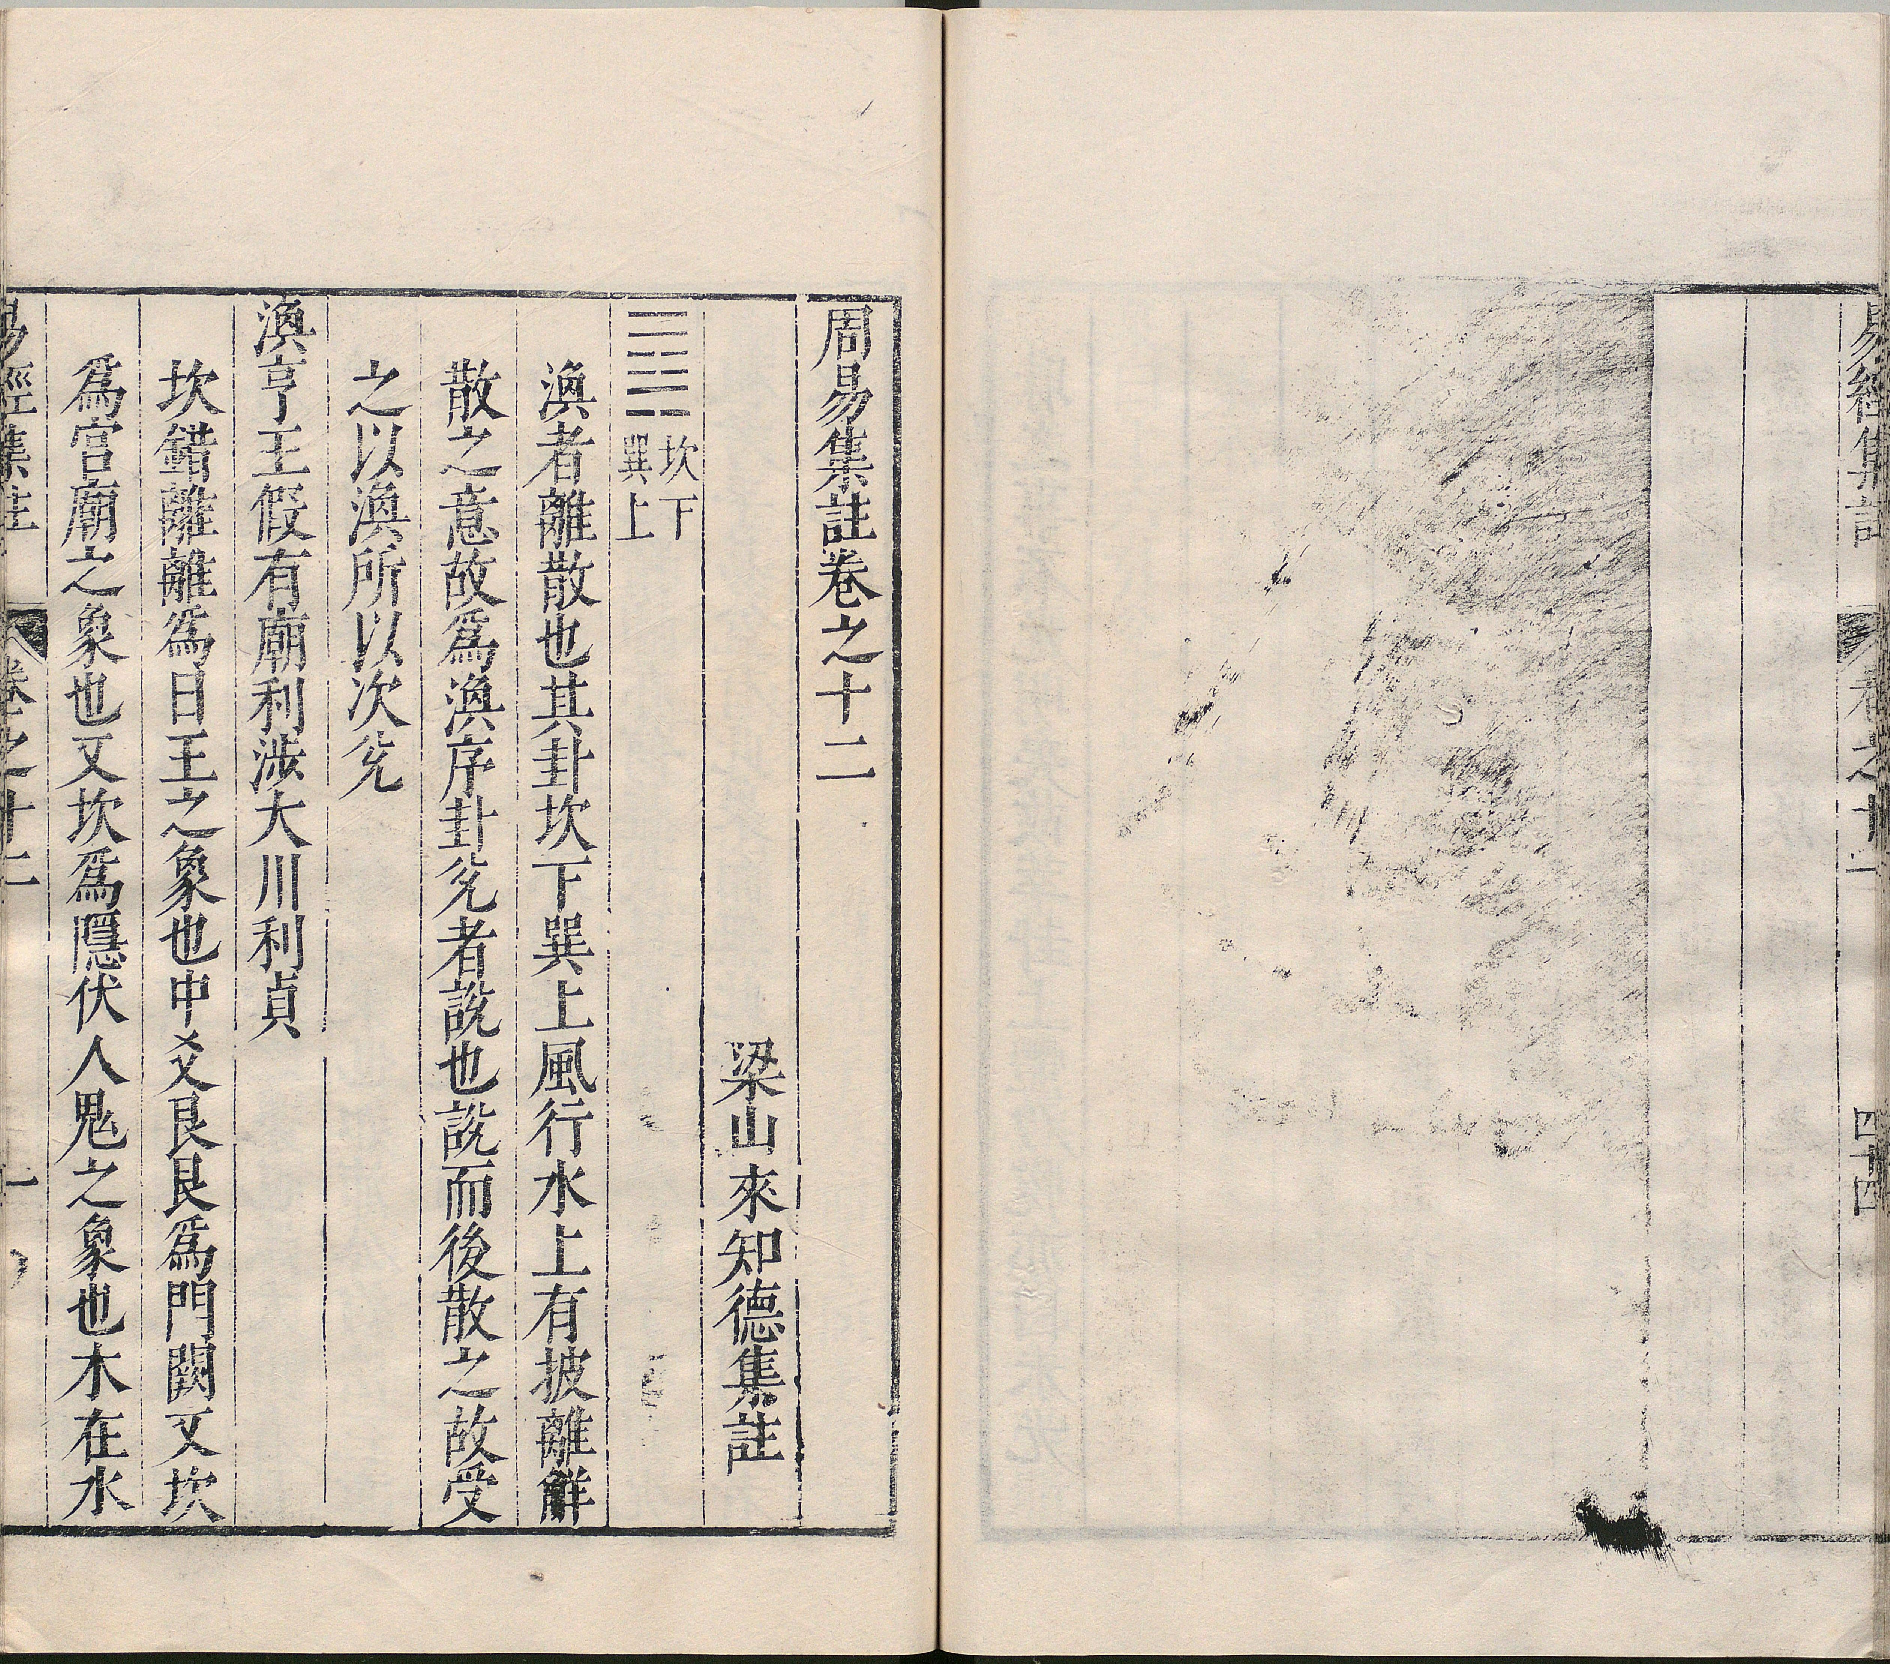 易經集註 卷之十一 四十四
周易集註卷之十二
梁山來知德集註
䷺ 坎下
巽上
渙者離散也其卦坎下巽上風行水上有披離觧
散之意故爲渙序卦兊者說也說而後散之故受
之以渙所以次兊
渙亨王假有廟利涉大川利貞
坎錯離離爲日王之象也中爻艮艮爲門闕又坎
爲宮廟之象也又坎爲隱伏人鬼之象也木在水
易經集註 卷之十二 一